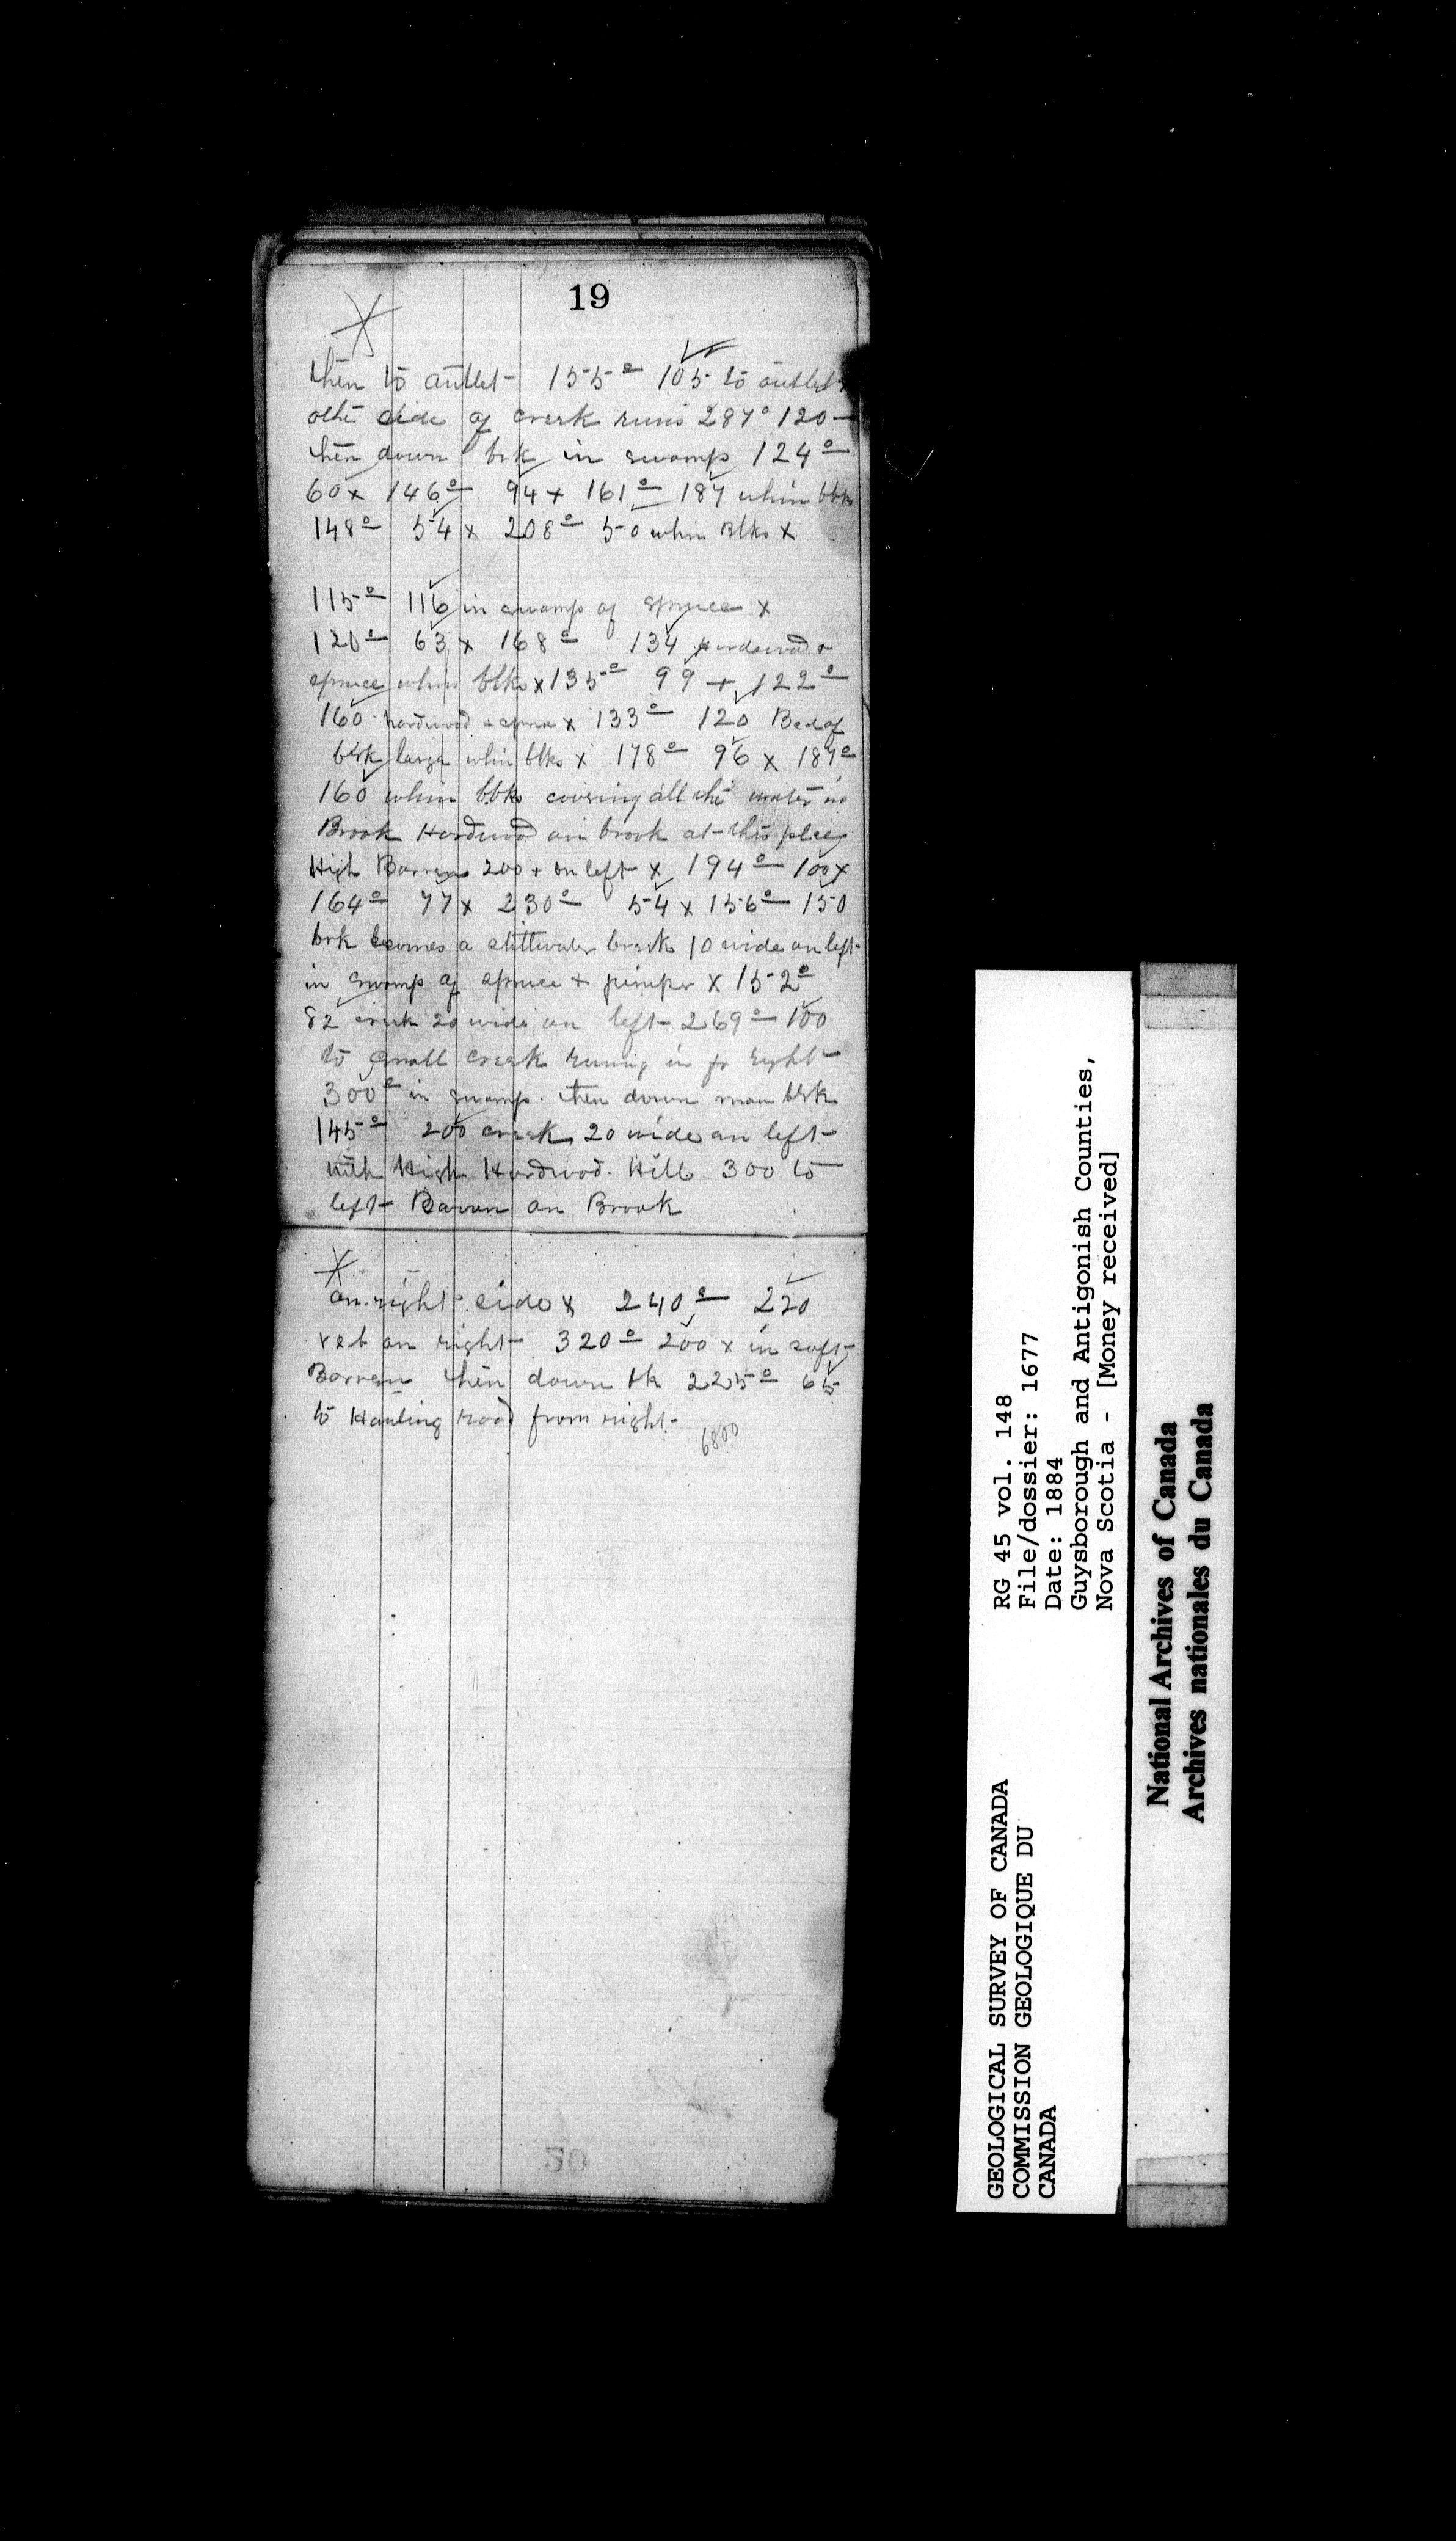 19
then to outlet 155° 105 to outlet
othe side of creek runs 287° 120
then down brk in swamp 124°
60 x 146° 94 x 161° 187 whin blks
148° 54 x 208° 50 whin Blks x
115° 116 in swamp of spruce x
120° 63 x 168° 134 hardwood +
spruce whin blks x 135° 99 + 122°
160 hardwood + spruce x 133° 120 Bed of
brk large whin blks x 178° 96 x 187°
160 whin blks covering all the water in
Brook Hardwood on brook at this place
High Barrens 200 + on left x 194° 100 x
164° 77 x 230° 54 x 156° 150
brk becomes a stillwater creek 10 wide on left
in swamp of spruce + juniper x 152°
82 creek 20 wide on left 269° 100
to small creek runing in fr right
300° in swamp. then down man brk
145° 200 creek 20 wide on left
with High Hardwood Hill 300 to
left Barren on Brook
on right side x 240° 220
on right 320° 200 x in soft
Barren then down 225° 65
to Hauling road from right
6800
RG 45 vol. 148
File/dossier: 1677
Date: 1884
Guysborough and Antigonish Counties,
Nova Scotia - [Money received]
GEOLOGICAL SURVEY OF CANADA
COMMISSION GEOLOGIQUE DU
CANADA
National Archives of Canada
Archives nationales du Canada